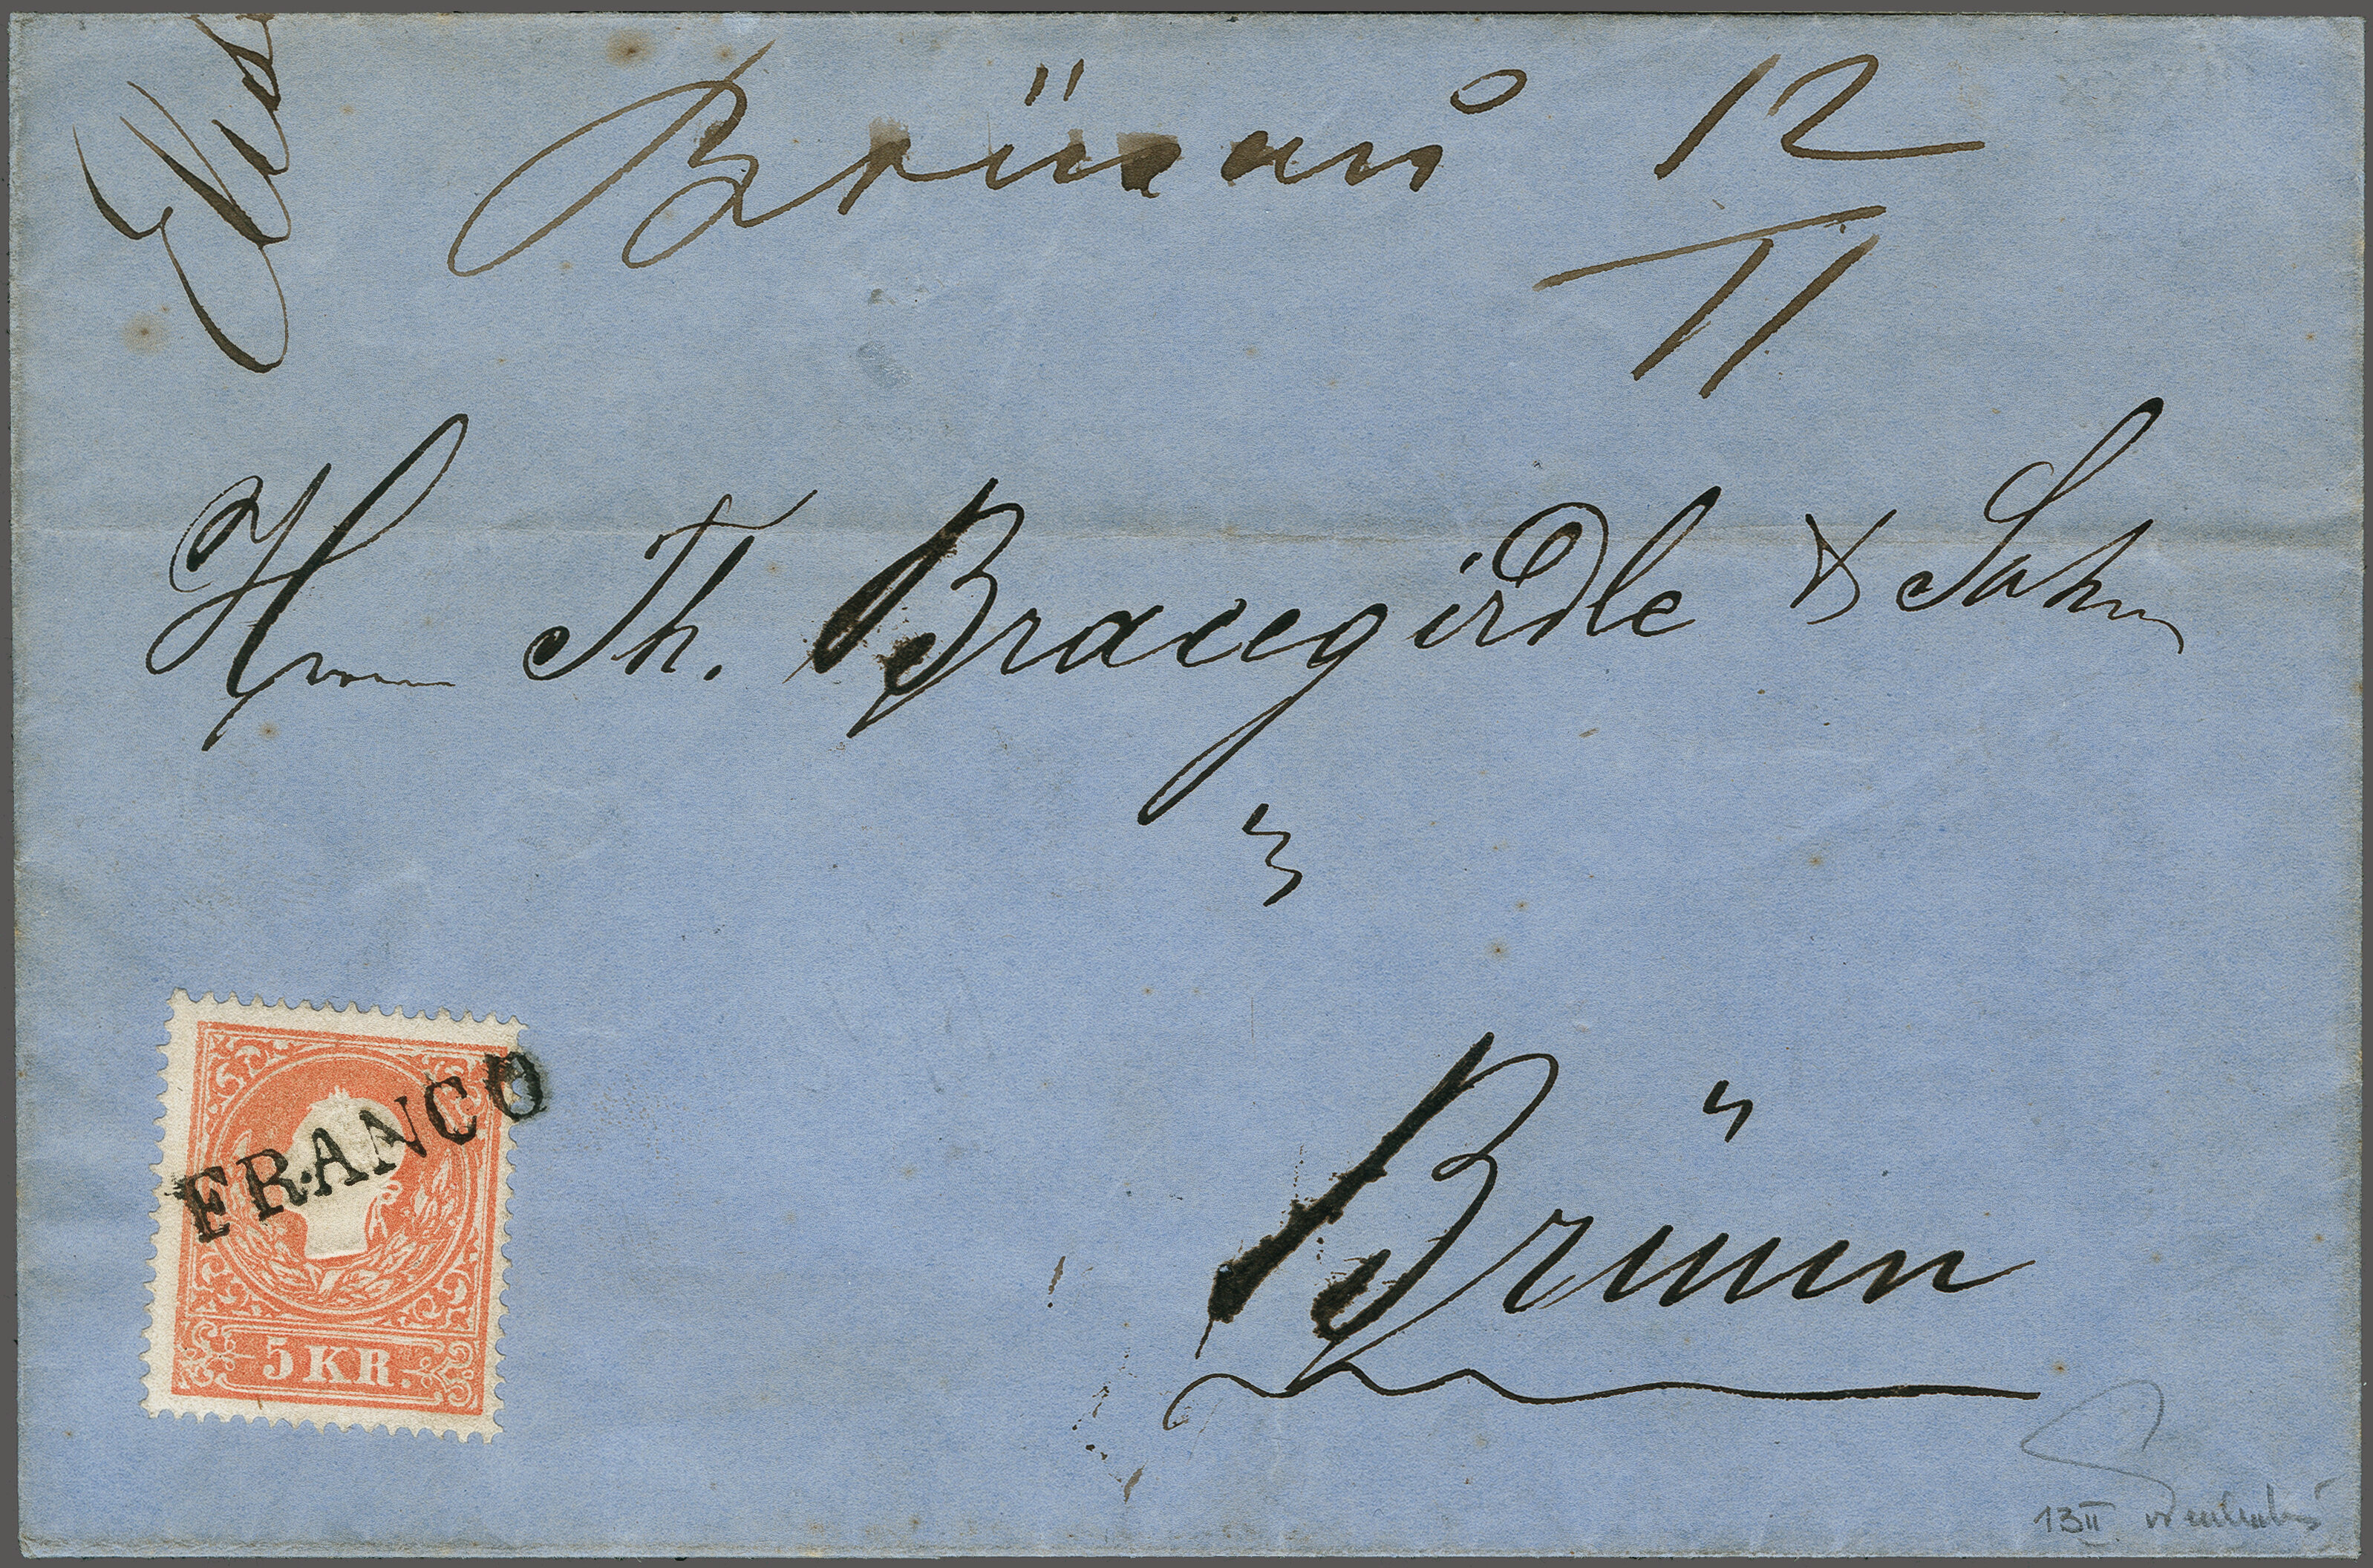 Brüsau 12
11
H Th. Bracegirdle & Sohn
Brünn
FRANCO
5 KR.
13 II